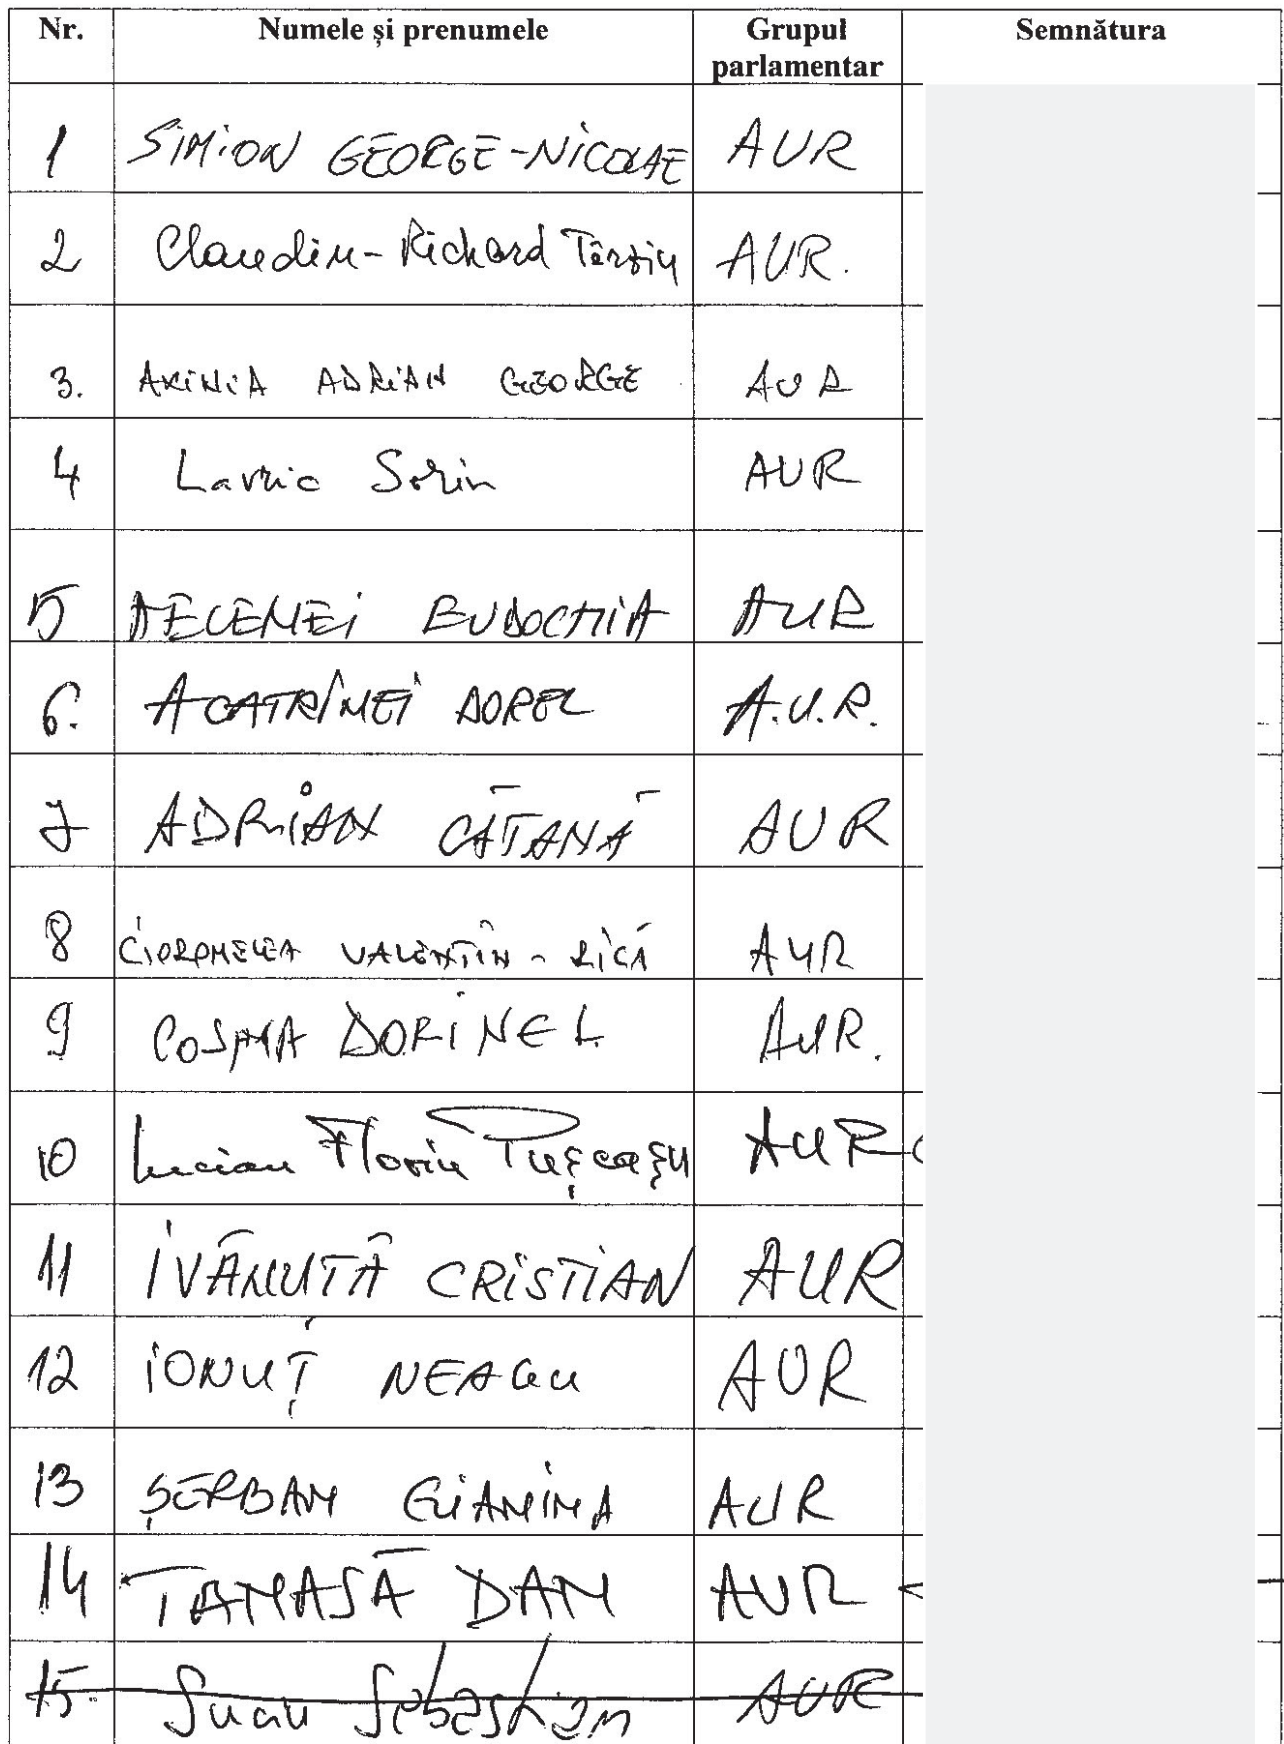 Nr. Numele și prenumele Grupul parlamentar Semnătura
1 SIMION GEORGE-NICOLAE AUR
2 Claudiu-Richard Târziu AUR.
3. AXINIA ADRIAN GEORGE AUR
4 Lavric Sorin AUR
5 AELENEI EUDOCHIA AUR
6. ACATRINEI DOREL A.U.R.
7 ADRIAN CĂTANĂ AUR
8 VALENTIN-RICĂ AUR
9 COSMA DORINEL AUR.
10 Lucian Florin Pușcașu AUR
11 IVĂNUȚĂ CRISTIAN AUR
12 IONUȚ NEAGU AUR
13 ȘERBAN GIANINA AUR
14 TANASĂ DAN AUR
15. Suciu Sebastian AUR